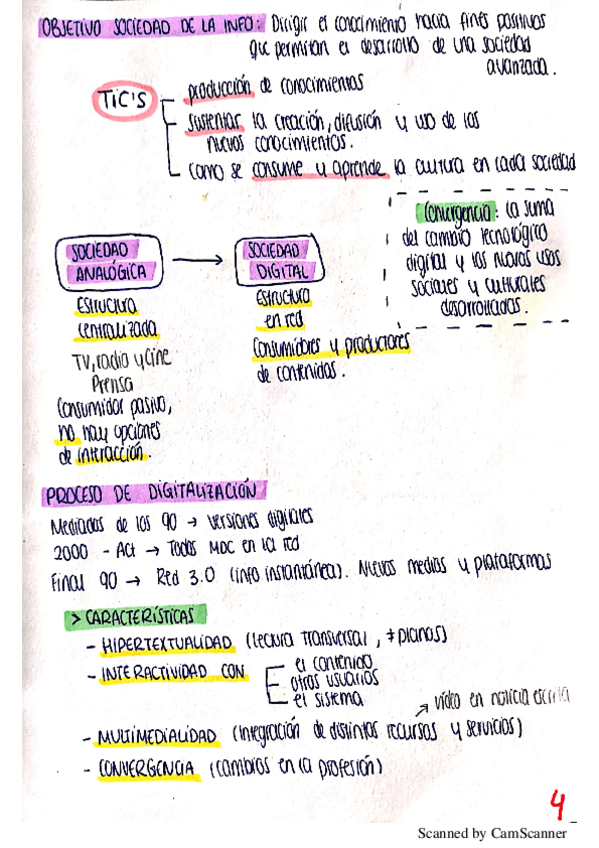 OBJETIVO SOCIEDAD DE LA INFO: Dirigir el conocimiento hacia fines positivos
que permitan el desarrollo de una sociedad
avanzada.
TIC'S
producción de conocimientos
sustentar la creación, difusión y uso de los
nuevos conocimientos.
como se consume y aprende la cultura en cada sociedad
Convergencia: la suma
del cambio tecnológico
digital y los nuevos usos
sociales y culturales
desarrollados.
SOCIEDAD
ANALÓGICA
Estructura
centralizada
TV, radio y cine
Prensa
Consumidor pasivo,
no hay opciones
de interacción.
SOCIEDAD
DIGITAL
Estructura
en red
Consumidores y productores
de contenidos.
PROCESO DE DIGITALIZACIÓN
Mediados de los 90 → versiones digitales
2000 - Act → Todos MDC en la red
Final 90 → Red 3.0 (info instantánea). Nuevos medios y plataformas
> CARACTERÍSTICAS
- HIPERTEXTUALIDAD (lectura transversal, ≠ planos)
- INTERACTIVIDAD CON
el contenido
otros usuarios
el sistema
→ vídeo en noticia escrita
- MULTIMEDIALIDAD (integración de distintos recursos y servicios)
- CONVERGENCIA (cambios en la profesión)
4
Scanned by CamScanner